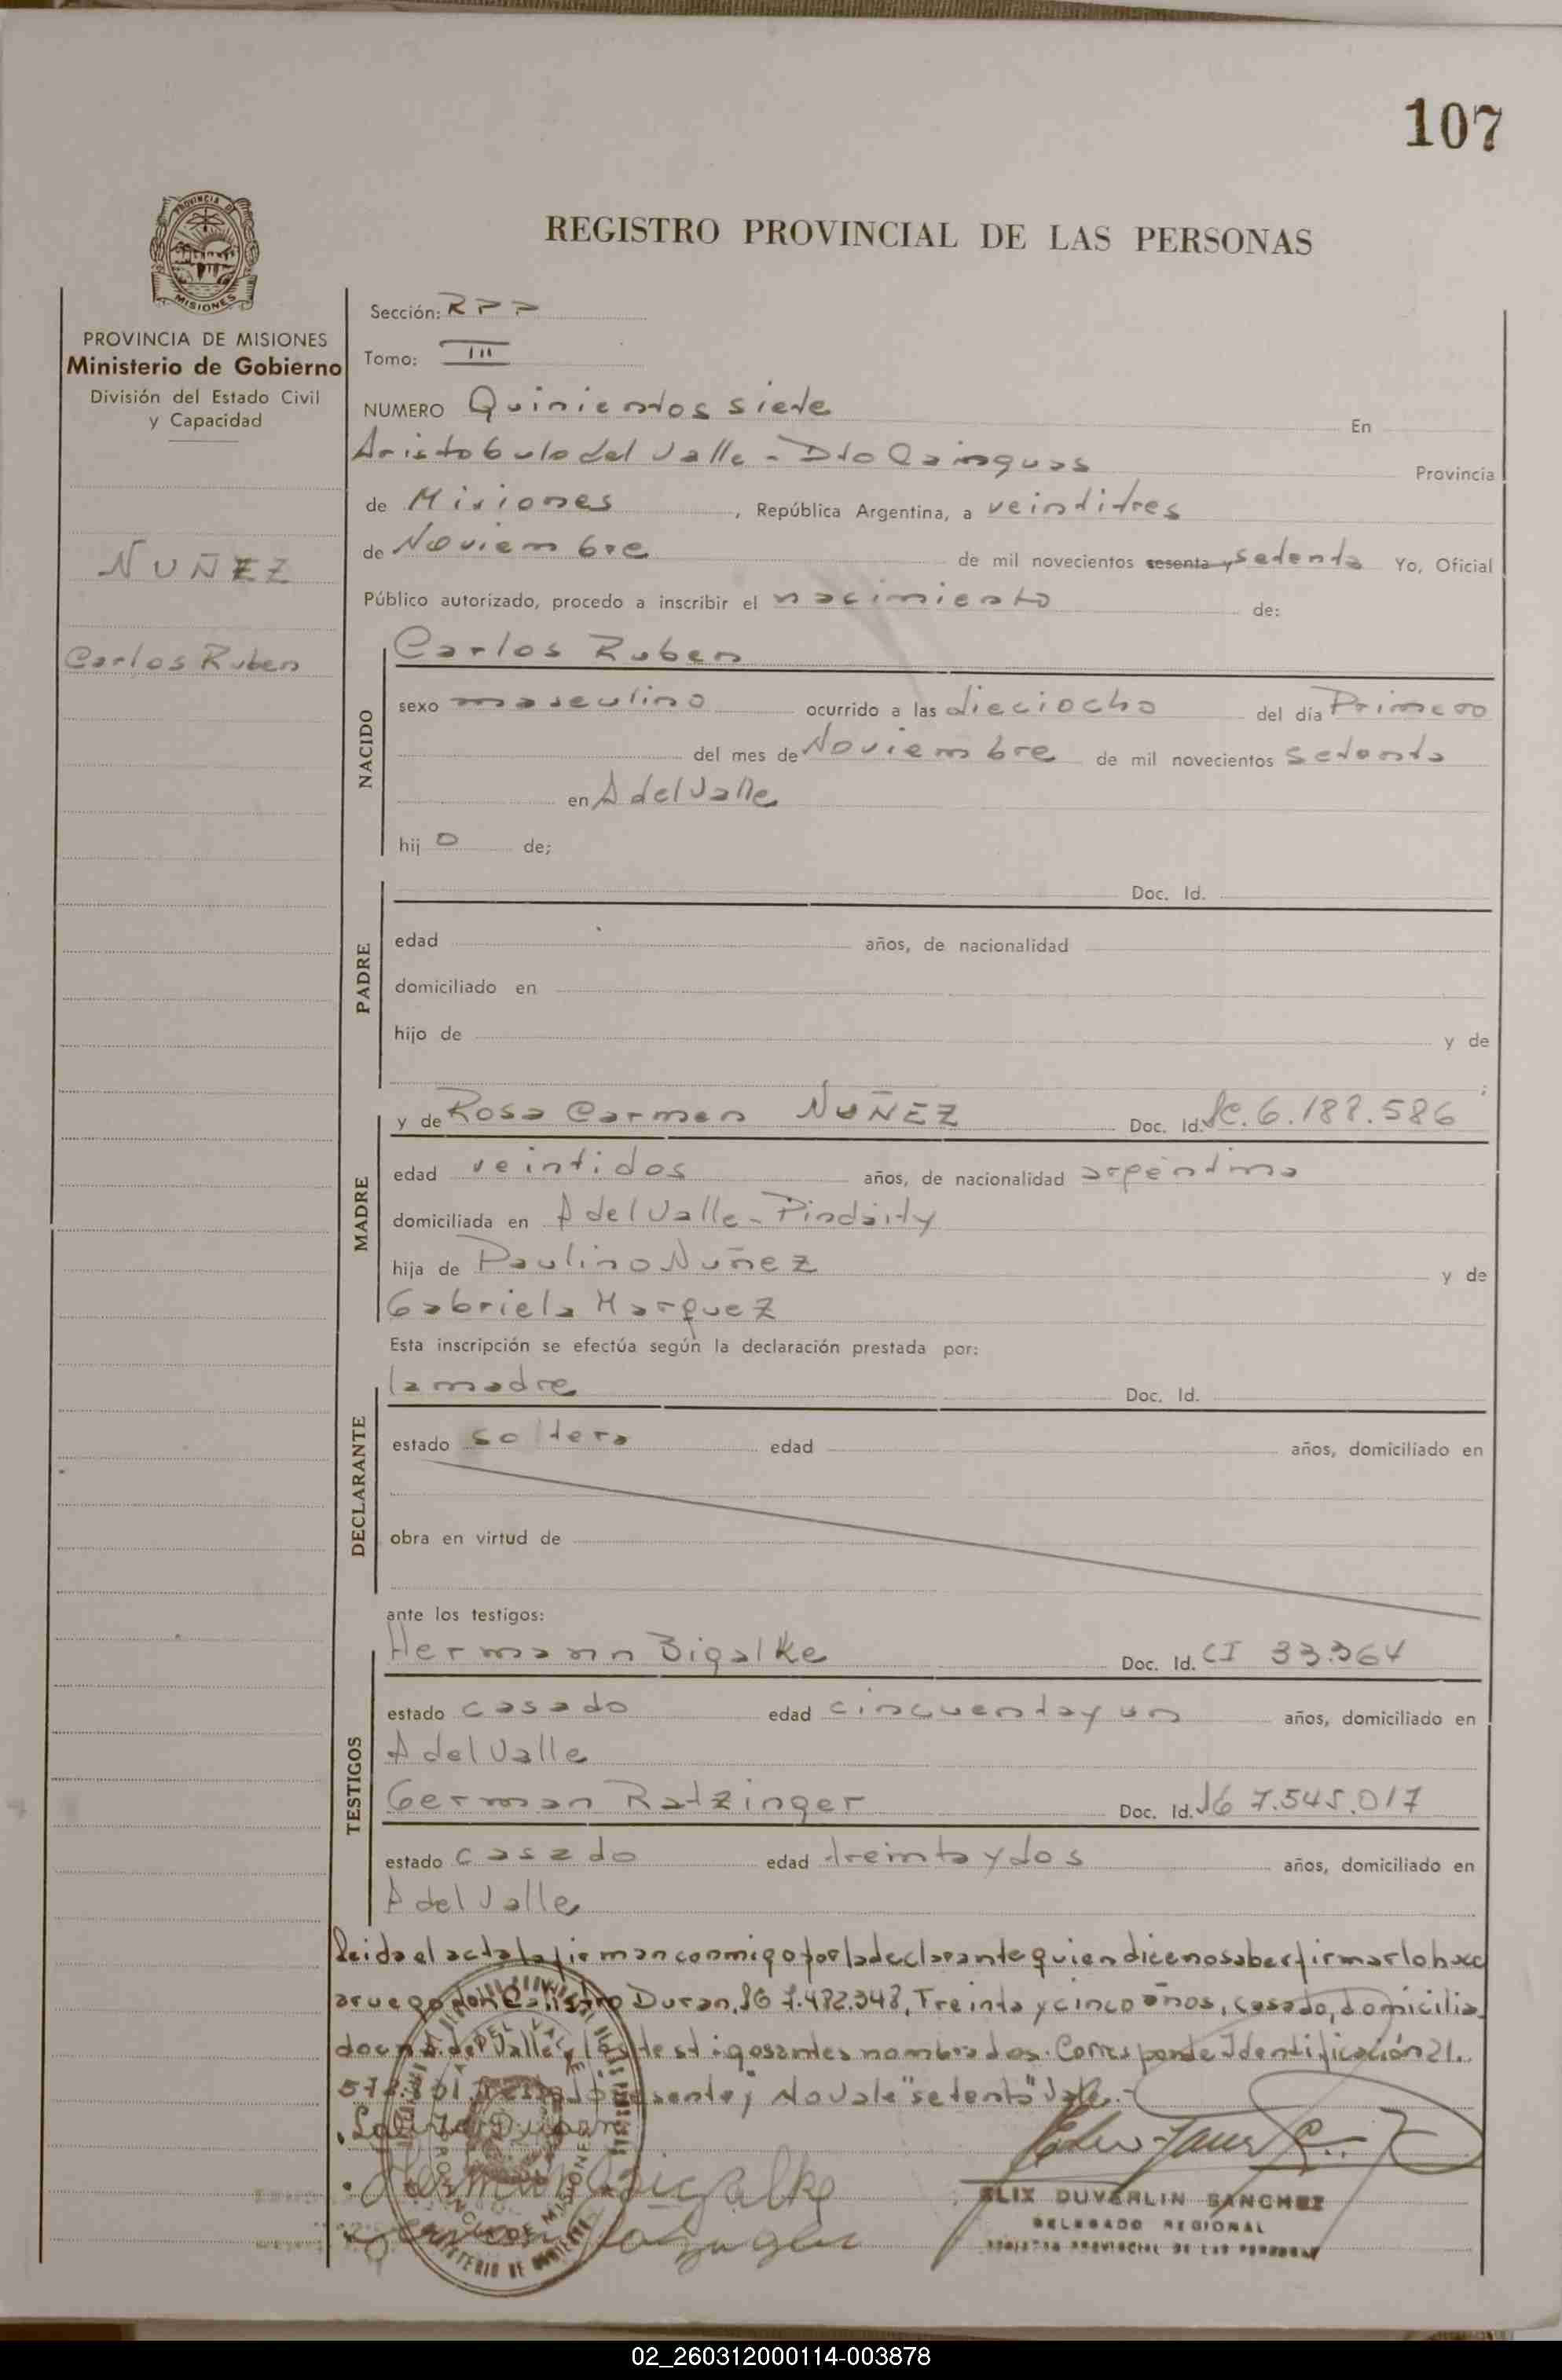 107
REGISTRO PROVINCIAL DE LAS PERSONAS
PROVINCIA DE MISIONES
PROVINCIA DE MISIONES
Ministerio de Gobierno
División del Estado Civil
y Capacidad
NUÑEZ
Carlos Ruben
Sección: RPP
Tomo: III
NUMERO Quinientos siete En
Aristobulo del Valle - Dto Cainguas Provincia
de Misiones, República Argentina, a veintitres
de Noviembre de mil novecientos sesenta y setenta Yo, Oficial
Público autorizado, procedo a inscribir el nacimiento de:
NACIDO
Carlos Ruben
sexo masculino ocurrido a las dieciocho del día Primero
del mes de Noviembre de mil novecientos setenta
en A del Valle
hijo de;
PADRE
Doc. Id.
edad años, de nacionalidad
domiciliado en
hijo de y de
MADRE
y de Rosa Carmen NUÑEZ Doc. Id. LC. 6.188.586
edad veintidos años, de nacionalidad argentina
domiciliada en A del Valle - Pindaity
hija de Paulino Nuñez y de
Gabriela Marquez
Esta inscripción se efectúa según la declaración prestada por:
DECLARANTE
la madre Doc. Id.
estado soltera edad años, domiciliado en
obra en virtud de
ante los testigos:
TESTIGOS
Hermann Bigalke Doc. Id. CI 33.364
estado casado edad cincuenta y un años, domiciliado en
A del Valle
German Ratzinger Doc. Id. 7.545.017
estado casado edad treinta y dos años, domiciliado en
A del Valle
Leida el acta la firman conmigo por la declarante quien dice no saber firmar lo hace
a ruego don Duran, 7.482.348, Treinta y cinco años, casado, domicilia
do en A. del Valle y los testigos antes nombrados. Corresponde Identificación 21.
No vale "setenta" Vale.-
Duran
Hermann Bigalke
ELIX DUVERLIN SANCHEZ
DELEGADO REGIONAL
REGISTRO PROVINCIAL DE LAS PERSONAS
02_260312000114-003878